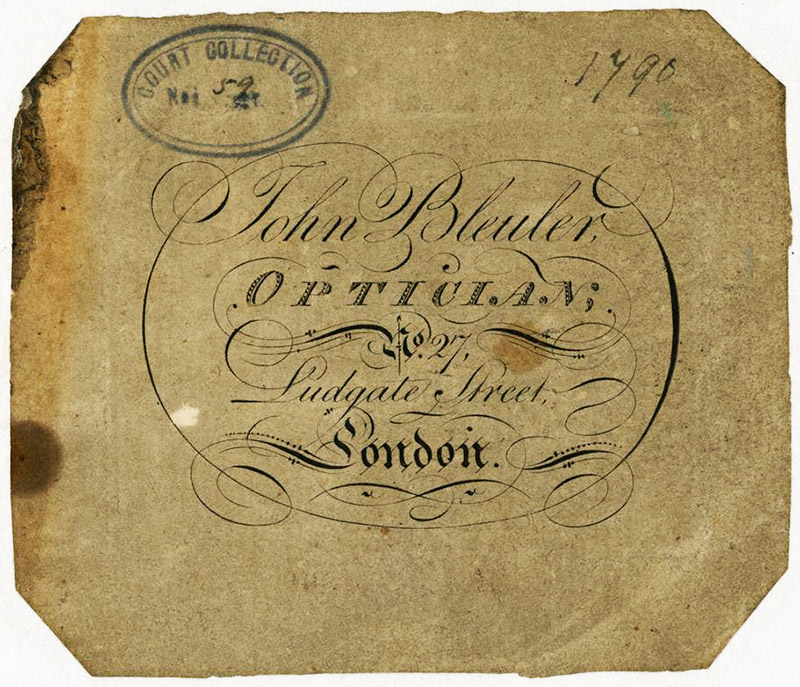 COURT COLLECTION
No. 59
1790
John Bleuler,
OPTICIAN;
No. 27,
Ludgate Street,
London.